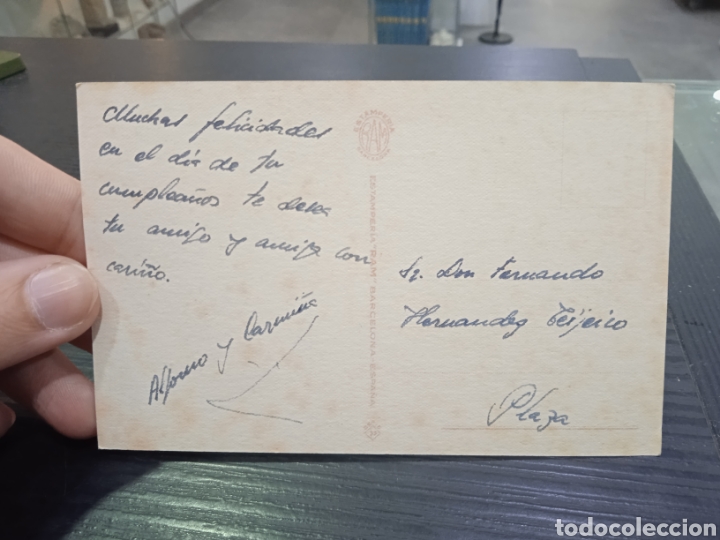 Muchas felicidades
en el día de tu
cumpleaños te desea
tu amigo y amiga con
cariño.
Alfonso y Carmiña
Sr. Don Fernando
Hernandez Teijeiro
Plaza
BARCELONA ESPAÑA
todocoleccion